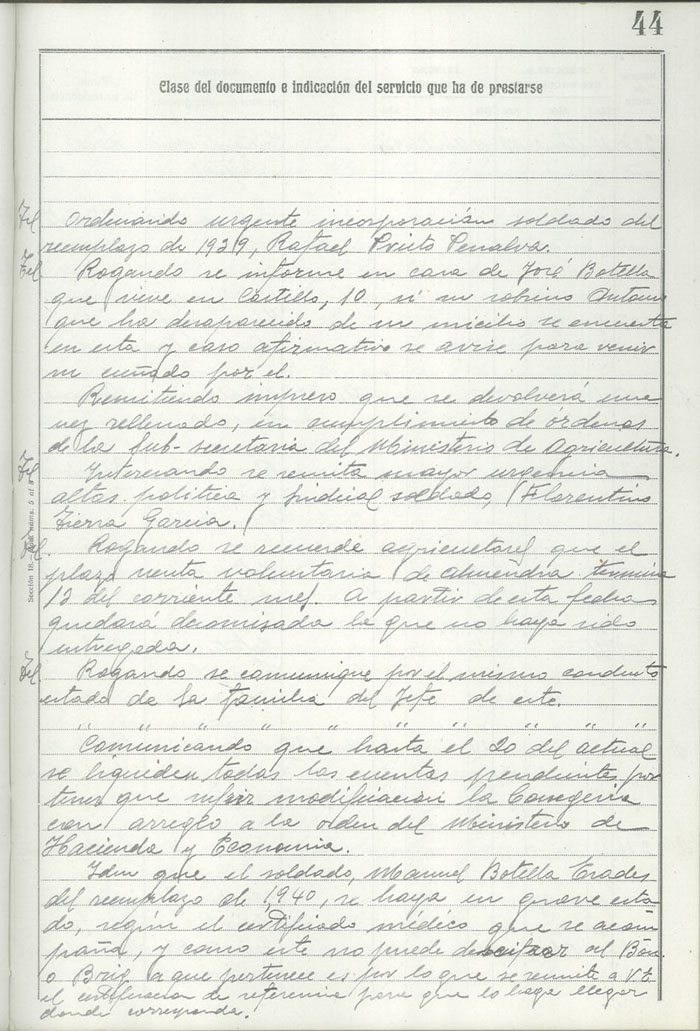 44
Clase del documento e indicación del servicio que ha de prestarse
Tel Ordenando urgente incorporación soldado del
reemplazo de 1939, Rafael Prieto Penalva.
Tel Rogando se informe en casa de José Botella
que vive en Castillo, 10, si su sobrino Antonio
que ha desaparecido de su micilio se encuentra
en esta y caso afirmativo se avise para venir
su cuñado por el.
Remitiendo impreso que se devolverá una
vez rellenado, en cumplimiento de órdenes
de la Sub-secretaria del Ministerio de Agricultura.
Tel Interesando se remita mayor urgencia
altas politica y sindical soldado, Florentino
Sierra Garcia.
Tel. Rogando se recuerde agricultores que el
plazo venta voluntaria de almendra termina
12 del corriente mes. A partir de esta fecha
quedara decomisada la que no haya sido
entregada.
Tel. Rogando se comunique por el mismo conducto
estado de la familia del Jefe de este.
" " " " " " " " " "
Comunicando que hasta el 20 del actual
se liquiden todas las cuentas pendientes por
tener que sufrir modificacion la Consegeria
con arreglo a la orden del Ministerio de
Hacienda y Economia.
Idem que el soldado, Manuel Botella Erades
del reemplazo de 1,940, se haya en grave esta
do, según el certificado médico que se acom
paña, y como este no puede descifrar al Bón.
o Brig. a que pertenece es por lo que se remite a Vd.
el certificacion de referencia para que lo haga llegar
donde corresponda.
Sección 18.